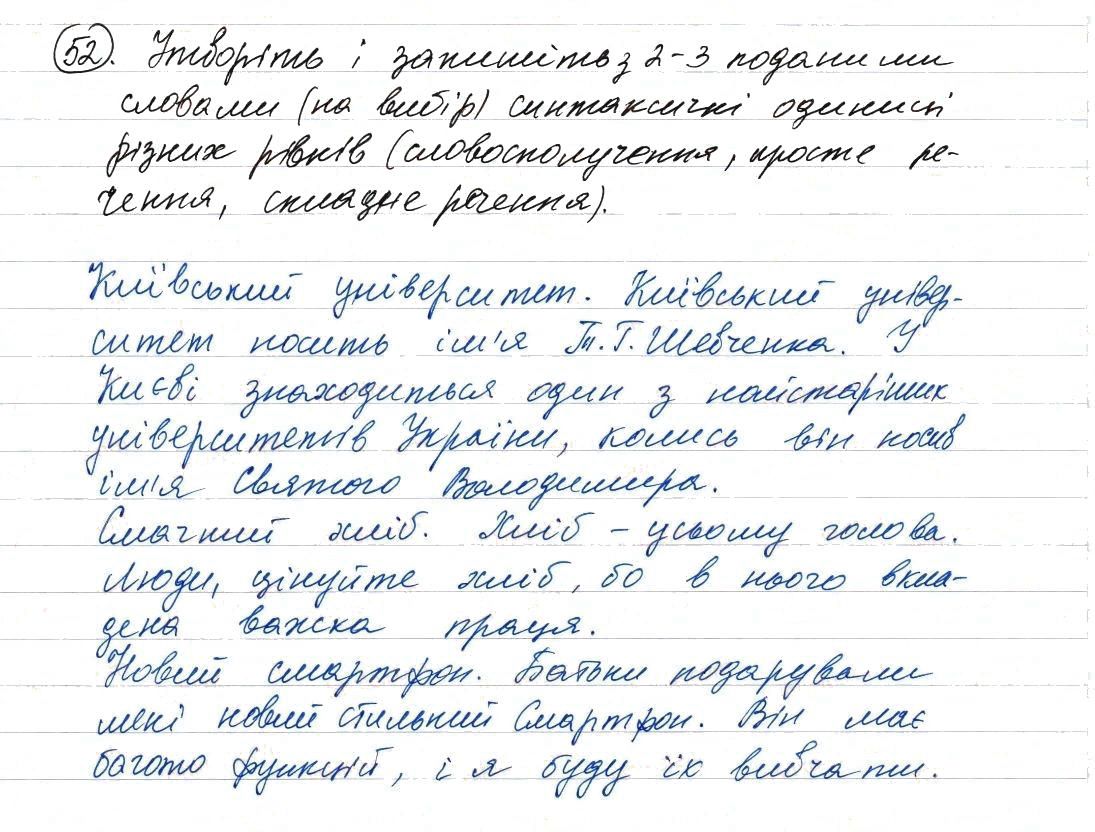 52. Утворіть і запишіть з 2-3 поданими
словами (на вибір) синтаксичні одиниці
різних рівнів (словосполучення, просте ре-
чення, складне речення).
Київський університет. Київський універ-
ситет носить ім'я Т.Г. Шевченка. У
Києві знаходиться один з найстаріших
університетів України, колись він носив
ім'я Святого Володимира.
Смачний хліб. Хліб – усьому голова.
Люди, цінуйте хліб, бо в нього вкла-
дена важка праця.
Новий смартфон. Батьки подарували
мені новий стильний смартфон. Він має
багато функцій, і я буду їх вивчати.